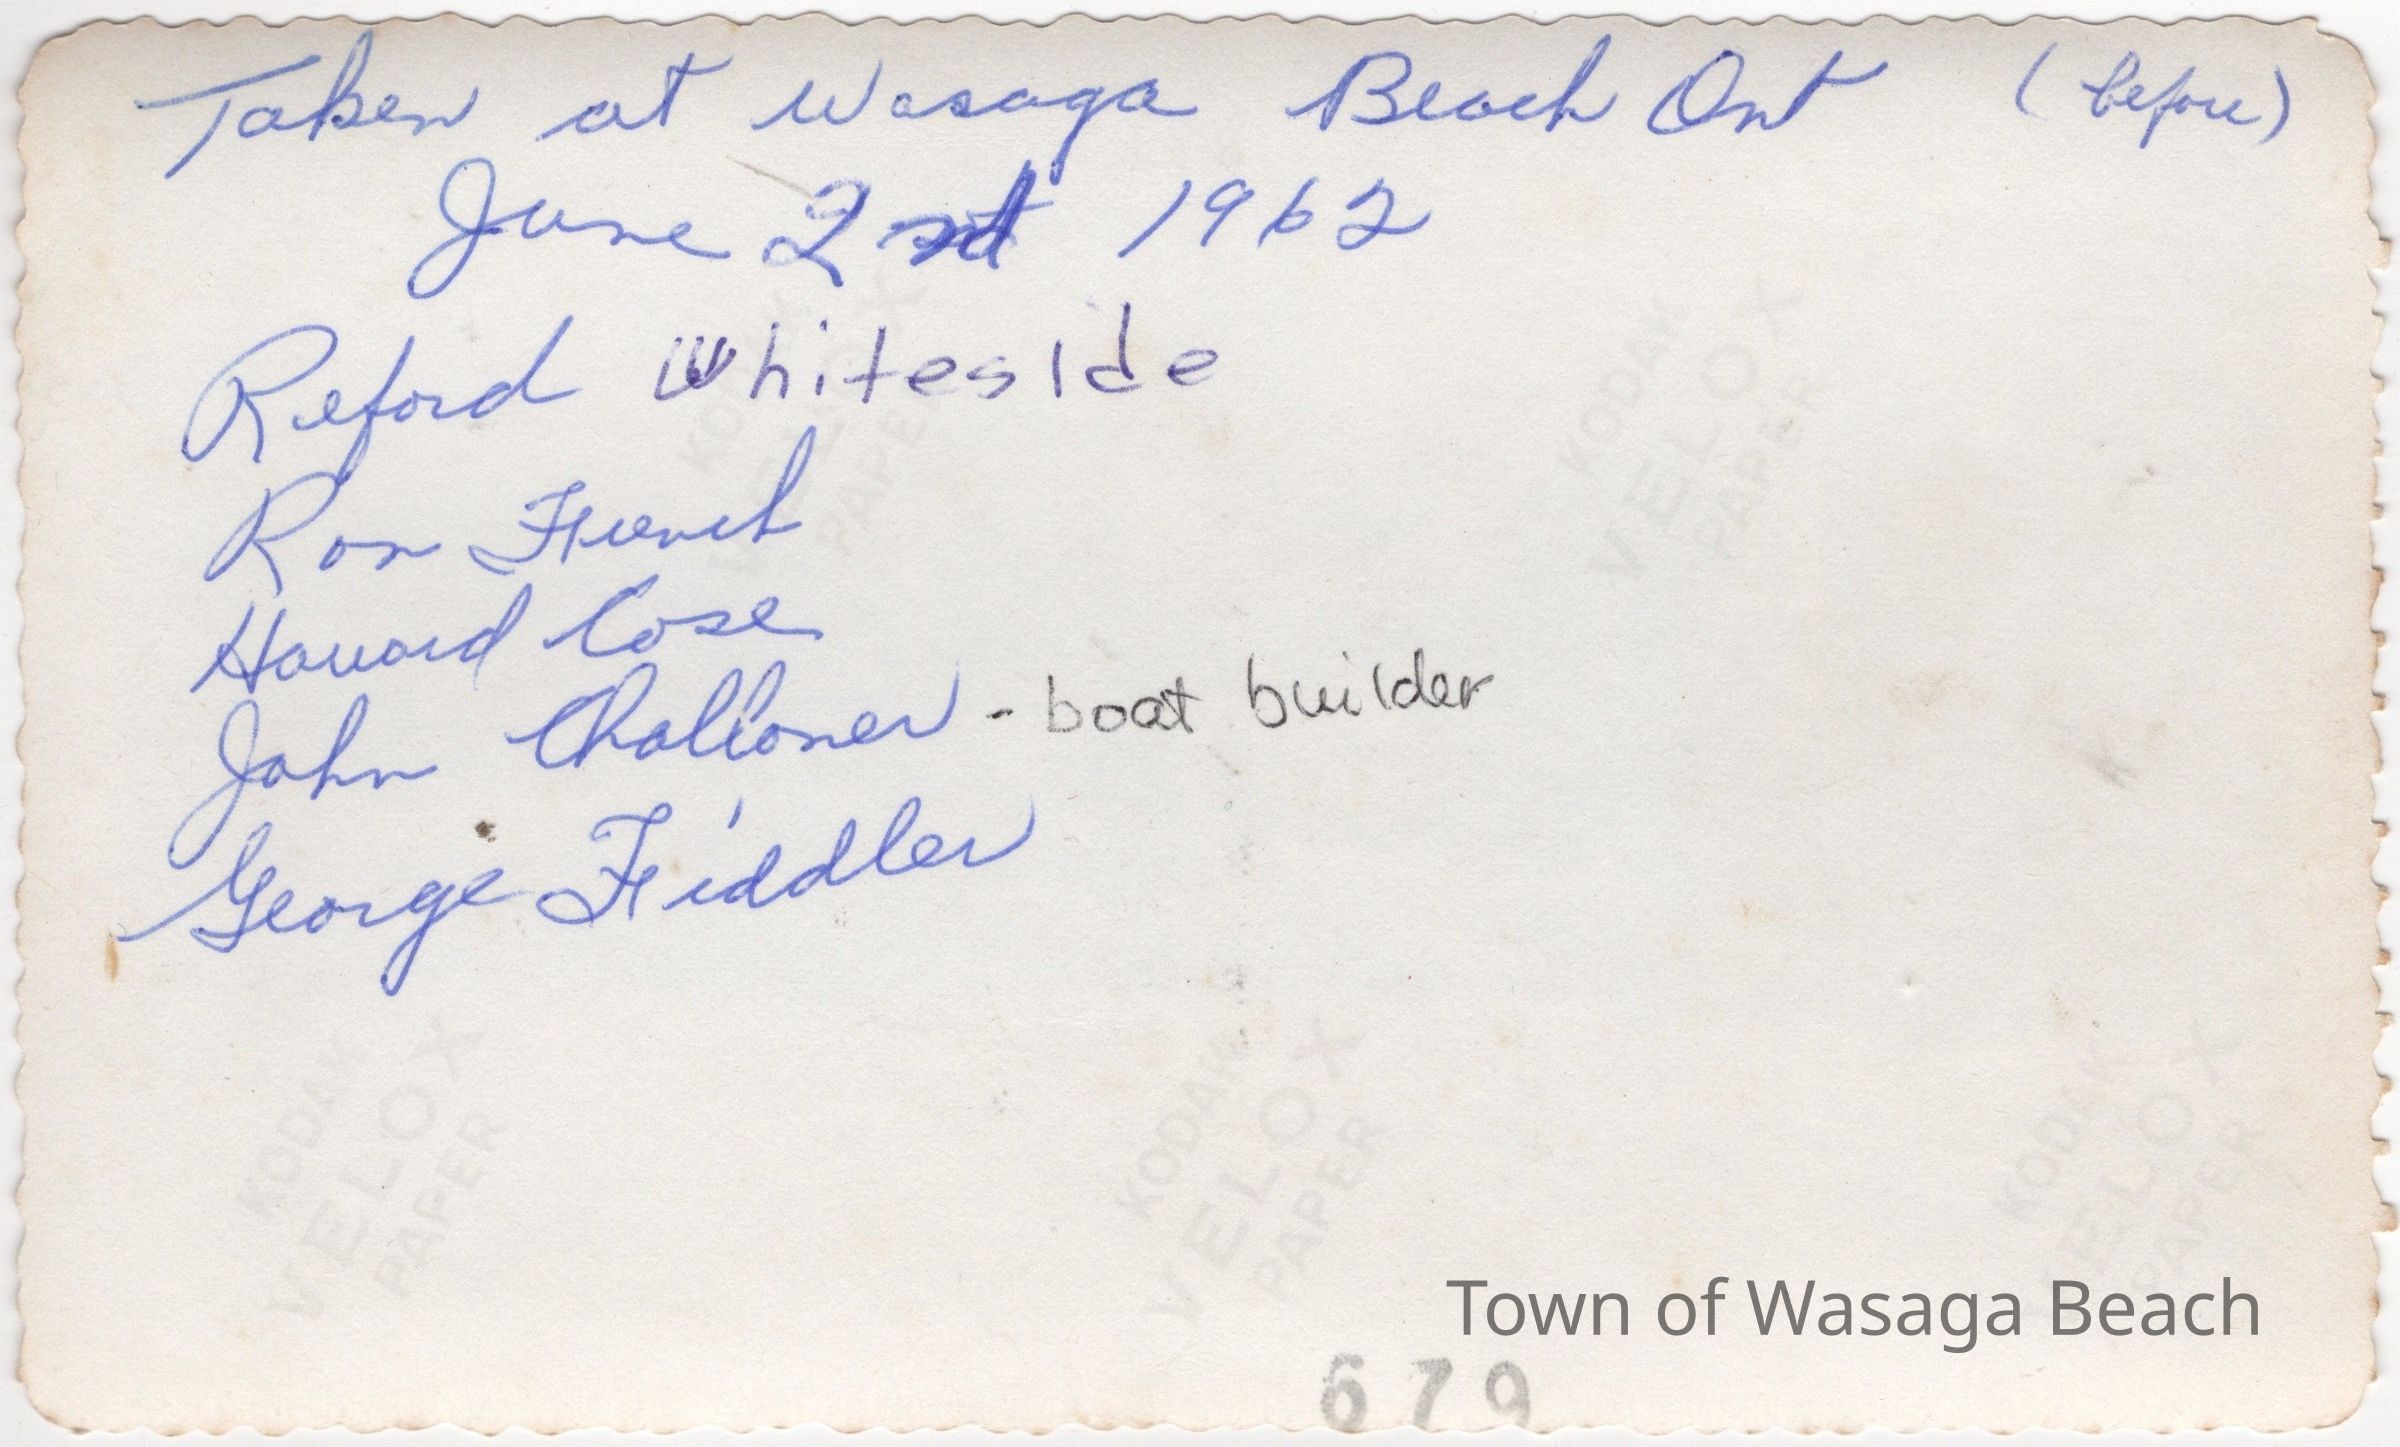 Taken at Wasaga Beach Ont (before)
June 2nd 1962
Reford Whiteside
Ron French
Howard Cose
John Challoner - boat builder
George Fiddler
KODAK
VELOX
PAPER
KODAK
VELOX
PAPER
KODAK
VELOX
PAPER
KODAK
VELOX
PAPER
KODAK
VELOX
PAPER
Town of Wasaga Beach
679